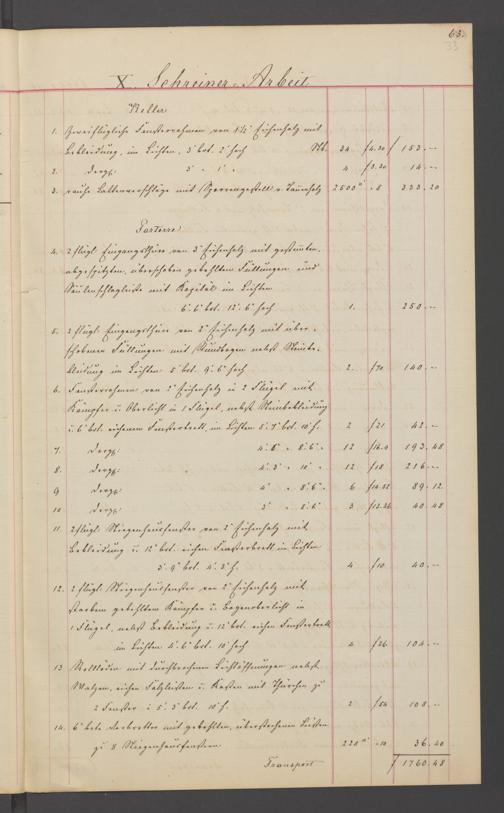 63.
33
X. Schreiner-Arbeit
Keller
1. Zweiflüglige Fensterrahmen von 1½" Eichenholz mit
Bekleidung, im Lichten, 3' brt. 2' hoch 34 f 4.30 f 153.--
2. dergl. 3' " 1' " 4 f 3.30 14.--
3. rauhe Lattenverschläge mit Sperrengestell v. Tannenholz 2500□' " 8 333.20
Parterre
4. 2 flügl. Eingangsthüre von 3" Eichenholz mit gestemmten,
abgespitzten, überschoben gekehlten Füllungen und
Säulenschlagleiste mit Kapitäl im Lichten
6.6" brt. 12.6" hoch 1. 250.--
5. 2 flügl. Eingangsthüre von 2" Eichenholz mit über-
schobenen Füllungen mit Rundbogen nebst
im Lichten 5' brt. 9.6" hoch 2. f 70 140.--
6. Fensterrahmen von 2" Eichenholz in 2 Flügel mit
Kämpfer u. Oberlicht in 1 Flügel, nebst Steinbekleidung
u. 6" brt. eichenem Fensterbrett, im Lichten 5.7" brt. 10' h. 2 f 21 42.--
7. dergl. 4.6" " 8.6" " 12 193.48
8. dergl. 4.3" " 10' " 12 f 18 216.--
9 dergl. 4' " 8.6" " 6 f 14.52 89.12
10 dergl. 3' " 8.6" 3 f 13.36 40.48
11. 2 flügl. Stiegenhausfenster von 2" Eichenholz mit
Bekleidung u. 12" brt. eichen Fensterbrett im Lichten
3.9" brt. 4.3" h. 4 f 10 40.--
12. 2 flügl. Stiegenhausfenster von 2" Eichenholz mit
starkem gekehltem Kämpfer u. Bogenoberlicht in
1 Flügel, nebst Bekleidung u. 12" brt. eichen Fensterbrett
im Lichten 4.6" brt. 10' hoch 4 f 26 104.--
13 Rolladen mit durchbrochenen Lichtöffnungen nebst
Walzen, eichen Falzleisten u. Kasten mit Thürchen zu
2 Fenster à 5.5" brt. 10' h. 2 f 54 108.--
14. 6" brte. mit gekehlten, überstochenen Leisten
zu 8 Stiegenhausfenstern 220□' " 10 36.40
Transport f 1760.48